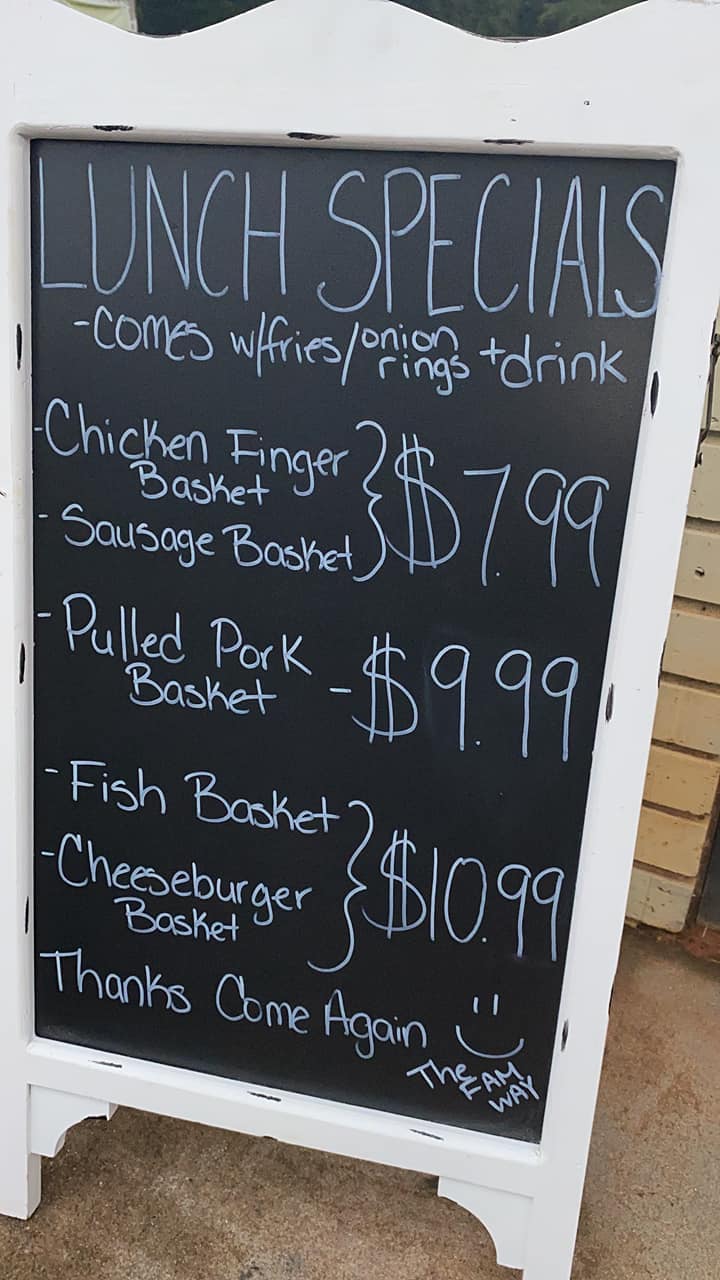 LUNCH SPECIALS
-comes w/fries/onion rings + drink
-Chicken Finger
Basket
- Sausage Basket } $7.99
- Pulled Pork
Basket - $9.99
- Fish Basket
-Cheeseburger
Basket } $10.99
Thanks Come Again
The
FAM
WAY